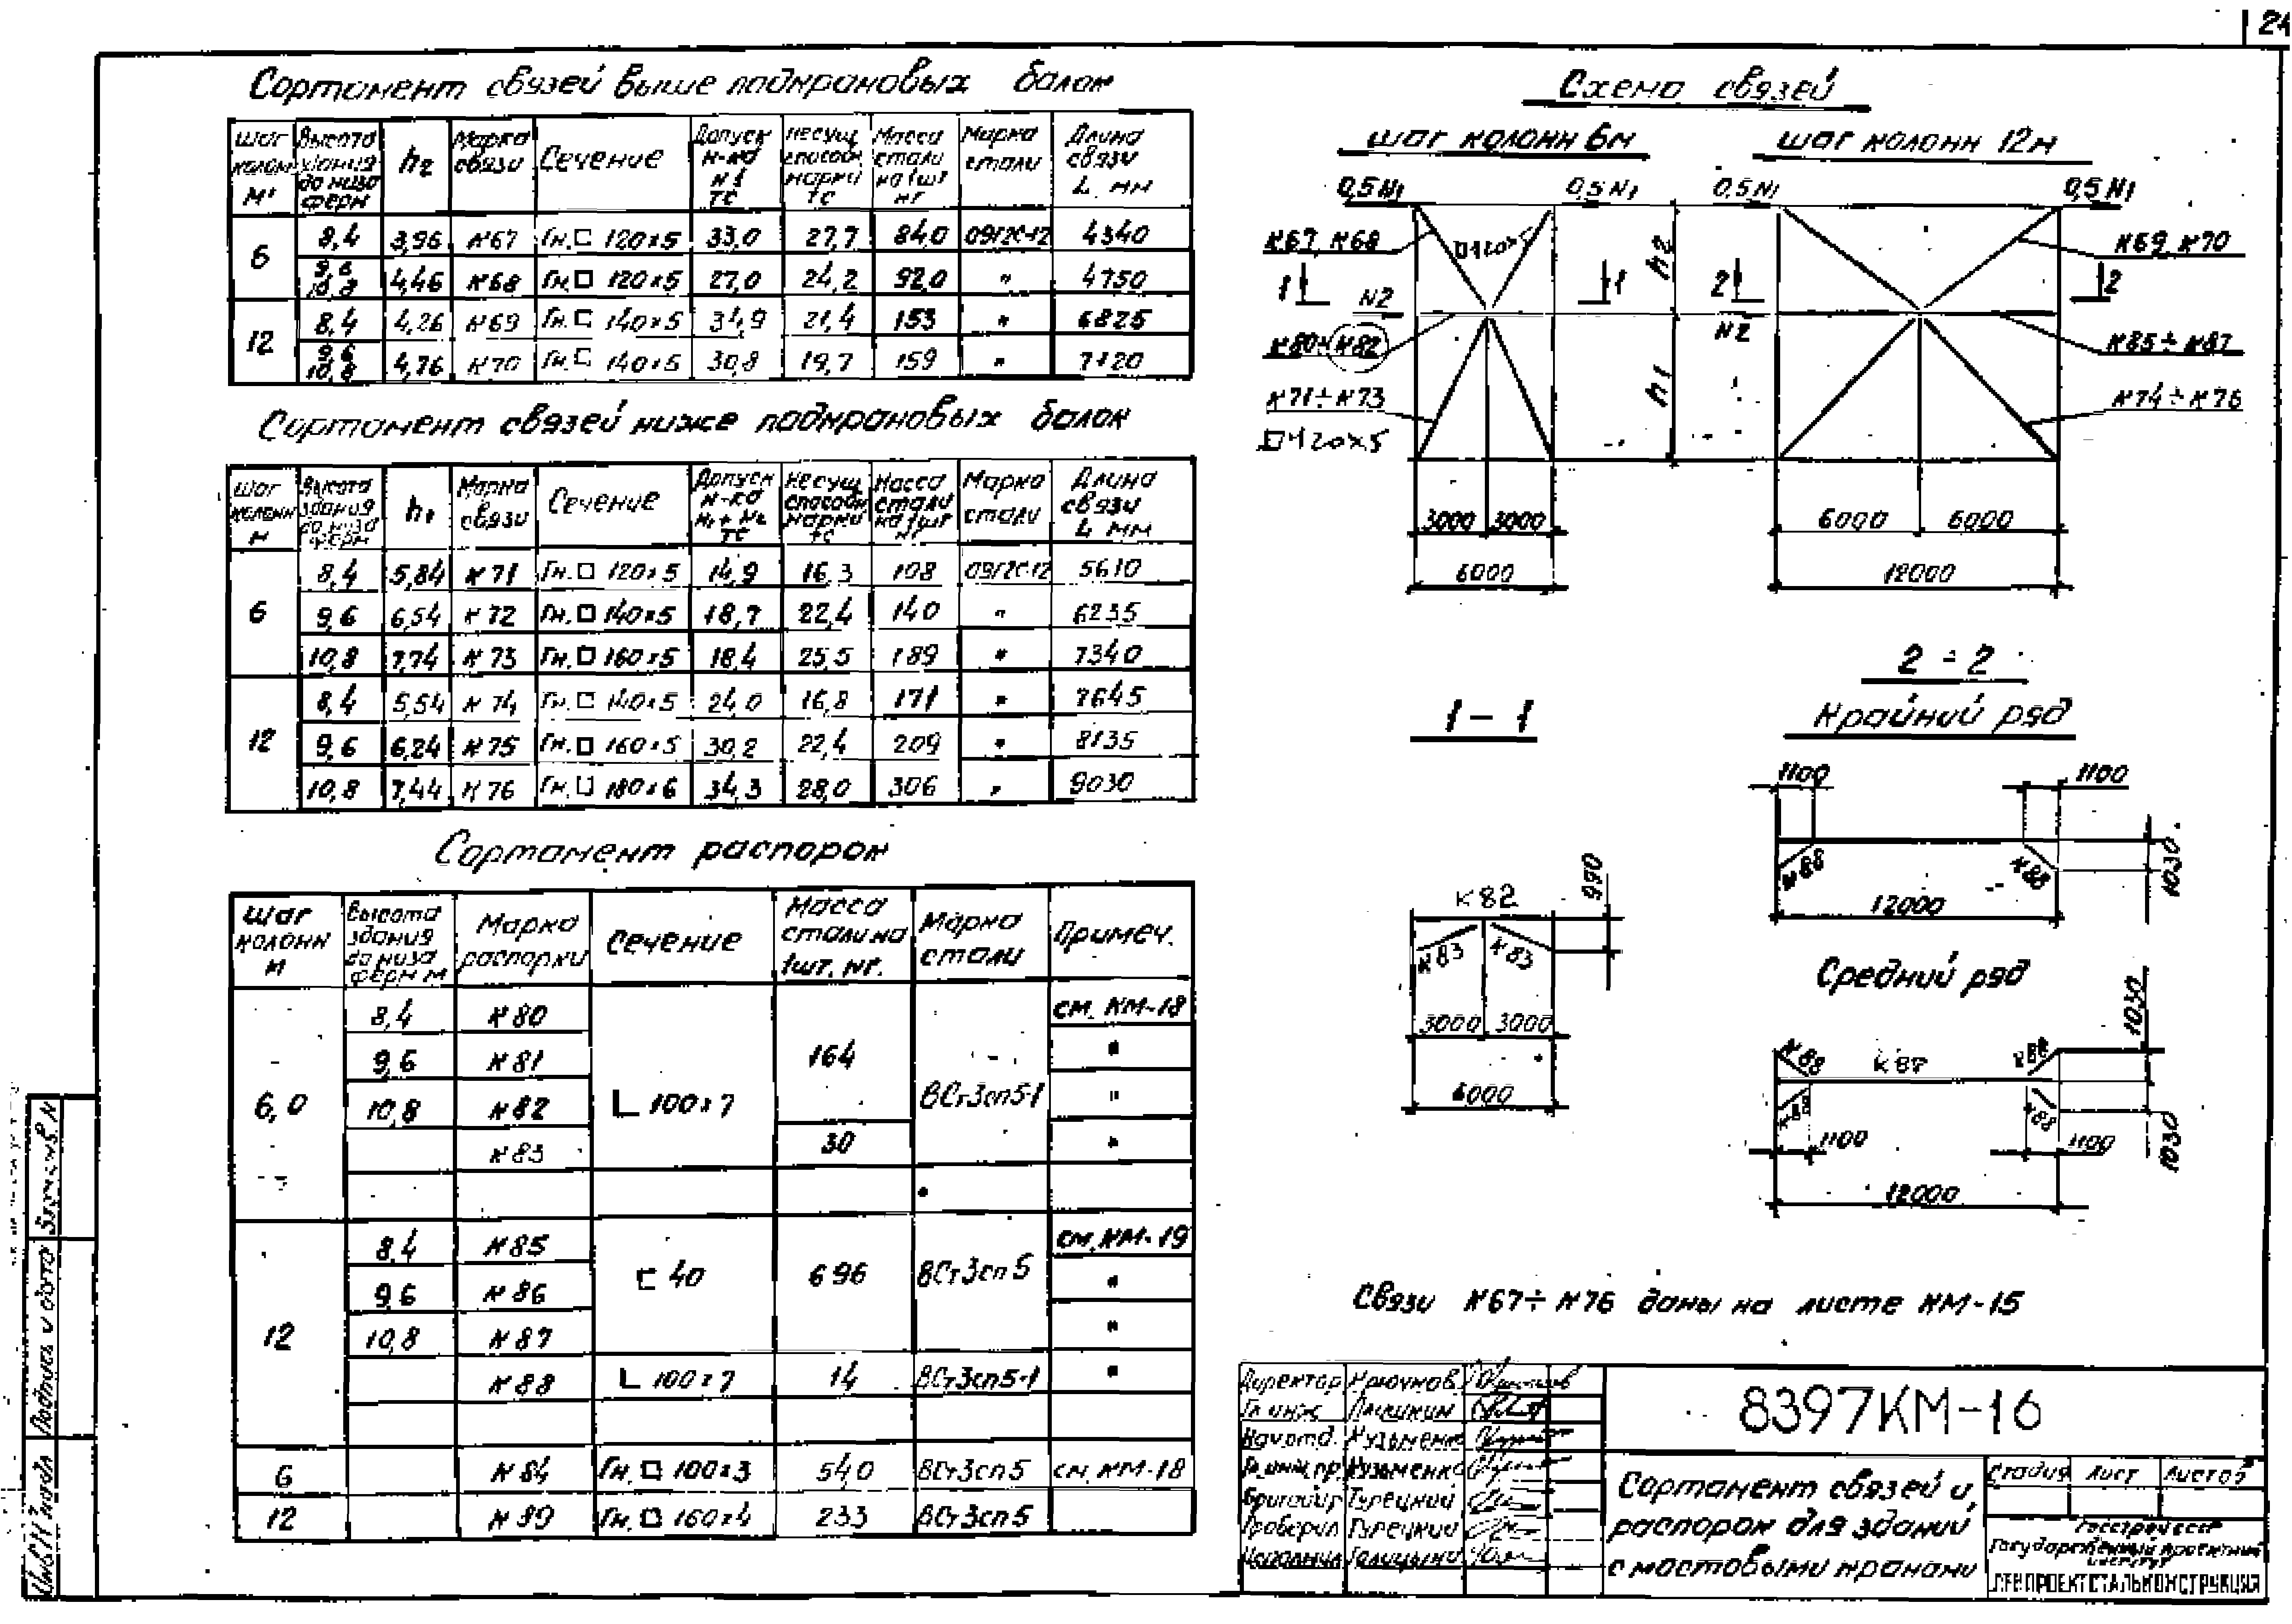 24
Сортамент связей выше подкрановых балок
Шаг колонн м | Высота здания до низа ферм | h2 | Марка связи | Сечение | Допуск н-ка N1 тс | Несущ. способн. марки тс | Масса стали на 1шт кг | Марка стали | Длина связи L мм
6 | 8,4 | 3,96 | К67 | Гн.□ 120×5 | 33,0 | 27,7 | 84,0 | 09Г2С-12 | 4340
9,6 10,8 | 4,46 | К68 | Гн.□ 120×5 | 27,0 | 24,2 | 92,0 | " | 4750
12 | 8,4 | 4,26 | К69 | Гн.□ 140×5 | 34,9 | 21,4 | 153 | " | 6825
9,6 10,8 | 4,76 | К70 | Гн.□ 140×5 | 30,8 | 19,7 | 159 | " | 7120
Сортамент связей ниже подкрановых балок
Шаг колонн м | Высота здания до низа ферм | h1 | Марка связи | Сечение | Допуск н-ка N1+N2 тс | Несущ. способн. марки тс | Масса стали на 1шт кг | Марка стали | Длина связи L мм
6 | 8,4 | 5,84 | К71 | Гн.□ 120×5 | 14,9 | 16,3 | 108 | 09Г2С-12 | 5610
9,6 | 6,54 | К72 | Гн.□ 140×5 | 18,7 | 22,4 | 140 | " | 6235
10,8 | 7,74 | К73 | Гн.□ 160×5 | 18,4 | 25,5 | 189 | " | 7340
12 | 8,4 | 5,54 | К74 | Гн.□ 140×5 | 24,0 | 16,8 | 171 | " | 7645
9,6 | 6,24 | К75 | Гн.□ 160×5 | 30,2 | 22,4 | 209 | " | 8135
10,8 | 7,44 | К76 | Гн.□ 180×6 | 34,3 | 28,0 | 306 | " | 9030
Сортамент распорок
Шаг колонн м | Высота здания до низа ферм м | Марка распорки | Сечение | Масса стали на 1шт. кг. | Марка стали | Примеч.
6,0 | 8,4 | К80 | L 100×7 | 164 | ВСт3сп5-1 | см. КМ-18
9,6 | К81 | "
10,8 | К82 | "
К83 | 30 | "
12 | 8,4 | К85 | [ 40 | 696 | ВСт3сп5 | см. КМ-19
9,6 | К86 | "
10,8 | К87 | "
К88 | L 100×7 | 14 | ВСт3сп5-1 | "
6 | К84 | Гн.□ 100×3 | 54,0 | ВСт3сп5 | см. КМ-18
12 | К89 | Гн.□ 160×4 | 233 | ВСт3сп5
Схема связей
шаг колонн 6м
шаг колонн 12м
0,5 N1
0,5 N1
0,5 N1
0,5 N1
К67, К68
□120×5
h2
К69, К70
1
1
2
2
N2
N2
К80÷К82
К85÷К87
К71÷К73
□120×5
h1
К74÷К76
3000 3000
6000 6000
6000
12000
1-1
К82
990
К83
К83
3000 3000
6000
2-2
Крайний ряд
1100
1100
К88
К88
1030
12000
Средний ряд
1030
К88
К87
К88
К88
К88
1100
1100
1030
12000
Связи К67÷К76 даны на листе КМ-15
Директор Крючков
Гл. инж.
Нач. отд. Кузьменко
Гл. инж. пр. Кузьменко
Бригадир Турецкий
Проверил Турецкий
Исполнил
8397КМ-16
Сортамент связей и распорок для зданий с мостовыми кранами
Стадия Лист Листов
Госстрой СССР
Государственный проектный институт
ЛЕНПРОЕКТСТАЛЬКОНСТРУКЦИЯ
Взам. инв. N
Подпись и дата
Инв. N подл